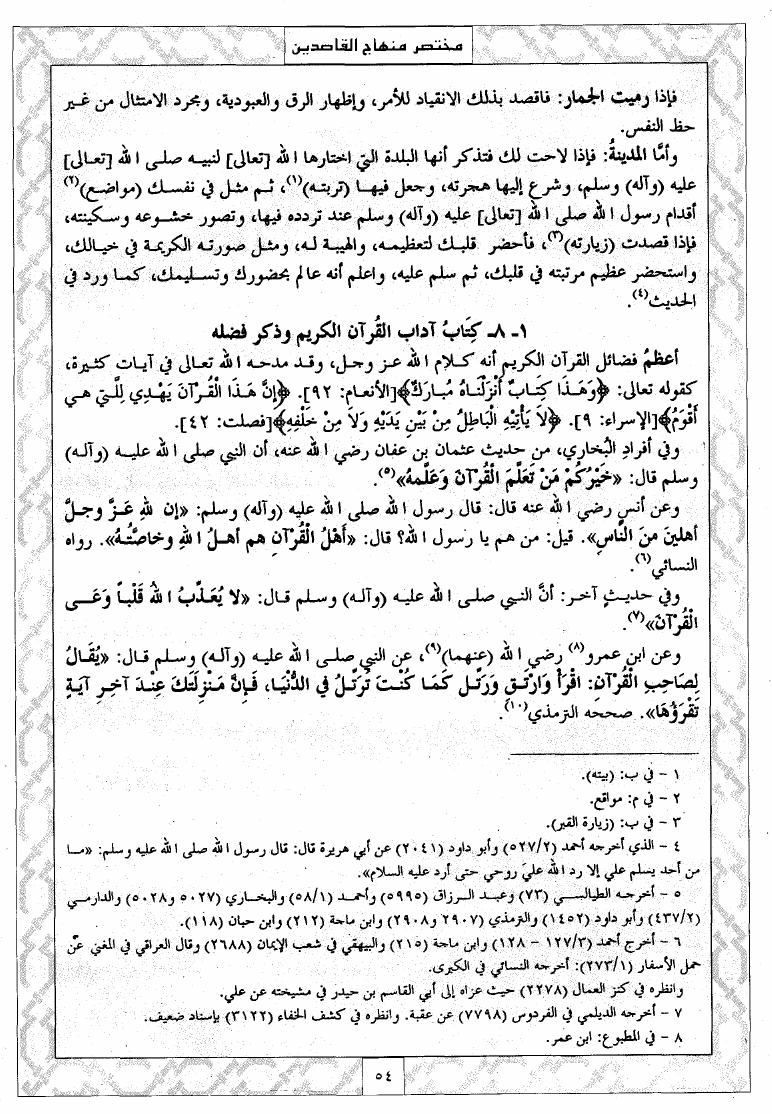 مختصر منهاج القاصدين
فإذا رميت الجمار: فاقصد بذلك الانقياد للأمر، وإظهار الرق والعبودية، ومجرد الامتثال من غير
حظ النفس.
وأمَّا المدينةُ: فإذا لاحت لك فتذكر أنها البلدة التي اختارها الله [تعالى] لنبيه صلى الله [تعالى]
عليه (وآله) وسلم، وشرع إليها هجرته، وجعل فيها (تربته)(١)، ثم مثل في نفسك (مواضع)(٢)
أقدام رسول الله صلى الله [تعالى] عليه (وآله) وسلم عند تردده فيها، وتصور خشوعه وسكينته،
فإذا قصدت (زيارته)(٣)، فأحضر قلبك لتعظيمه، والهيبة له، ومثل صورته الكريمة في خيالك،
واستحضر عظيم مرتبته في قلبك، ثم سلم عليه، واعلم أنه عالم بحضورك وتسليمك، كما ورد في
الحديث(٤).
١- ٨- كِتَابُ آداب القُرآن الكريم وذكر فضله
أعظمُ فضائل القرآن الكريم أنه كلام الله عز وجل، وقد مدحه الله تعالى في آيات كثيرة،
كقوله تعالى: ﴿وَهَذَا كِتَابٌ أَنْزَلْنَاهُ مُبَارَكٌ﴾[الأنعام: ٩٢]. ﴿إِنَّ هَذَا الْقُرْآنَ يَهْدِي لِلَّتِي هِيَ
أَقْوَمُ﴾[الإسراء: ٩]. ﴿لاَ يَأْتِيهِ الْبَاطِلُ مِنْ بَيْنِ يَدَيْهِ وَلاَ مِنْ خَلْفِهِ﴾[فصلت: ٤٢].
وفي أفرادِ البُخاري، من حديث عثمان بن عفان رضي الله عنه، أن النبي صلى الله عليه (وآله)
وسلم قال: «خَيْرُكُمْ مَنْ تَعَلَّمَ الْقُرْآنَ وَعَلَّمهُ»(٥).
وعن أنسٍ رضي الله عنه قال: قال رسول الله صلى الله عليه (وآله) وسلم: «إن للهِ عَزَّ وجلَّ
أهلينَ مِنَ النَّاسِ». قيل: من هم يا رسول الله؟ قال: «أَهْلُ الْقُرْآنِ هم أهلُ اللهِ وخاصَّتُهُ». رواه
النسائي(٦).
وفي حديثٍ آخر: أنَّ النبي صلى الله عليه (وآله) وسلم قال: «لا يُعَذِّبُ اللهُ قَلْباً وَعَى
الْقُرْآنَ»(٧).
وعن ابن عمرو(٨) رضي الله (عنهما)(٩)، عن النبي صلى الله عليه (وآله) وسلم قال: «يُقَالُ
لِصَاحِبِ الْقُرْآنِ: اقْرَأْ وَارْتَقِ وَرَتِّلْ كَمَا كُنْتَ تُرَتِّلُ في الدُّنْيَا، فَإِنَّ مَنْزِلَتَكَ عِنْدَ آخِرِ آيَةٍ
تَقْرَؤُهَا». صححه الترمذي(١٠).
١ - في ب: (بيته).
٢ - في م: مواقع.
٣ - في ب: (زيارة القبر).
٤ - الذي أخرجه أحمد (٥٢٧/٢) وأبو داود (٢٠٤١) عن أبي هريرة قال: قال رسول الله صلى الله عليه وسلم: «ما
من أحد يسلم علي إلا رد الله عليَّ روحي حتى أرد عليه السلام».
٥ - أخرجه الطيالسي (٧٣) وعبد الرزاق (٥٩٩٥) وأحمد (٥٨/١) والبخاري (٥٠٢٧ و٥٠٢٨) والدارمي
(٤٣٧/٢) وأبو داود (١٤٥٢) والترمذي (٢٩٠٧ و٢٩٠٨) وابن ماجة (٢١٢) وابن حبان (١١٨).
٦ - أخرج أحمد (١٢٧/٣ - ١٢٨) وابن ماجة (٢١٥) والبيهقي في شعب الإيمان (٢٦٨٨) وقال العراقي في المغني عن
حمل الأسفار (٢٧٣/١): أخرجه النسائي في الكبرى.
وانظره في كنز العمال (٢٢٧٨) حيث عزاه إلى أبي القاسم بن حيدر في مشيخته عن علي.
٧ - أخرجه الديلمي في الفردوس (٧٧٩٨) عن عقبة. وانظره في كشف الخفاء (٣١٢٢) بإسناد ضعيف.
٨ - في المطبوع: ابن عمر.
٥٤